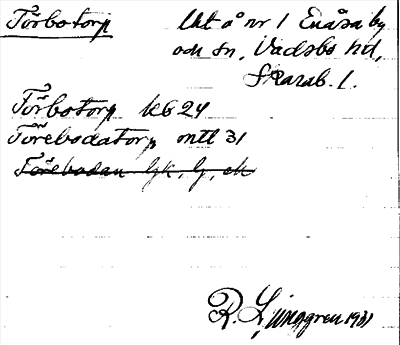 Törbotorp
Utt å nr 1 Enåsa by
och sn, Vadsbo hd,
Skarab. l.
Törbotorp KG 24
Törebodatorp mtl 31
Törebodan Gk, G, ek
R. Ljunggren 1931